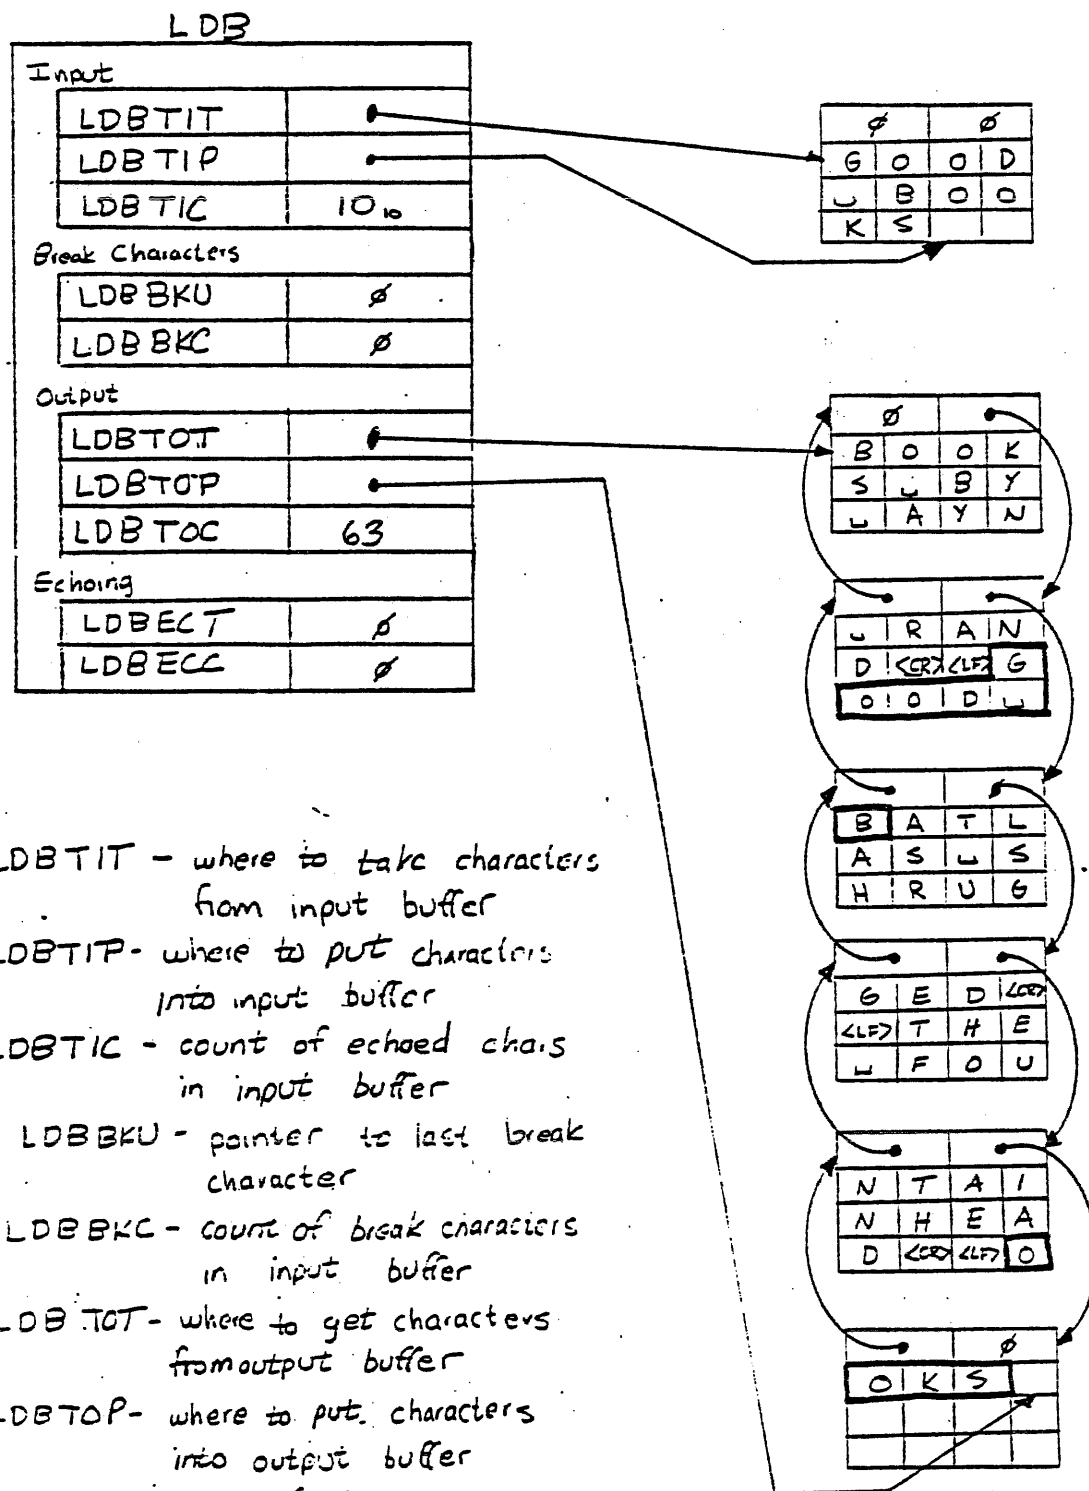 LDB
Input
LDBTIT
LDBTIP
LDBTIC 10₁₀
Break Characters
LDBBKU ∅
LDBBKC ∅
Output
LDBTOT
LDBTOP
LDBTOC 63
Echoing
LDBECT ∅
LDBECC ∅
∅ ∅
G O O D
␣ B O O
K S
∅
B O O K
S ␣ B Y
␣ A Y N
␣ R A N
D <CR> <LF> G
O O D ␣
B A T L
A S ␣ S
H R U G
G E D <CR>
<LF> T H E
␣ F O U
N T A I
N H E A
D <CR> <LF> O
∅
O K S
LDBTIT - where to take characters
from input buffer
LDBTIP - where to put characters
into input buffer
LDBTIC - count of echoed chars
in input buffer
LDBBKU - pointer to last break
character
LDBBKC - count of break characters
in input buffer
LDBTOT - where to get characters
from output buffer
LDBTOP - where to put characters
into output buffer